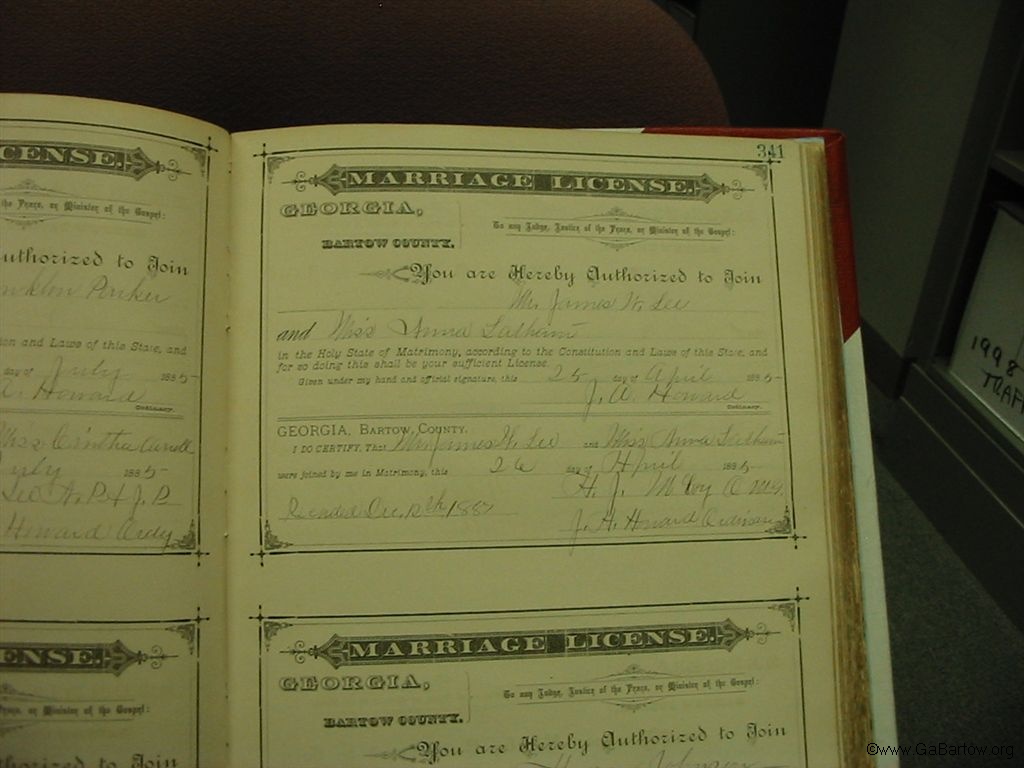 CENSE.
the Peace, or Minister of the Gospel:
uthorized to Join
Parker
on and Laws of this State, and
day of July 1885
A. Howard
Ordinary.
Miss Cinthia
July 1885
Howard Ordy
ENSE.
Peace, or Minister of the Gospel:
thorized to Join
341
MARRIAGE LICENSE.
GEORGIA,
BARTOW COUNTY.
To any Judge, Justice of the Peace, or Minister of the Gospel:
You are Hereby Authorized to Join
Mr. James W. Lee
and Miss Anna
in the Holy State of Matrimony, according to the Constitution and Laws of this State, and
for so doing this shall be your sufficient License.
Given under my hand and official signature, this 25 day of April 1885
J. A. Howard
Ordinary.
GEORGIA, BARTOW COUNTY.
I DO CERTIFY, That Mr James W. Lee and Miss Anna
were joined by me in Matrimony, this 26 day of April 1885
H. J. McCoy O.M.G.
Recorded Dec, 1887
J. A. Howard Ordinary
MARRIAGE LICENSE.
GEORGIA,
BARTOW COUNTY.
To any Judge, Justice of the Peace, or Minister of the Gospel:
You are Hereby Authorized to Join
Johnson
1998
TRAF
©www.GaBartow.org